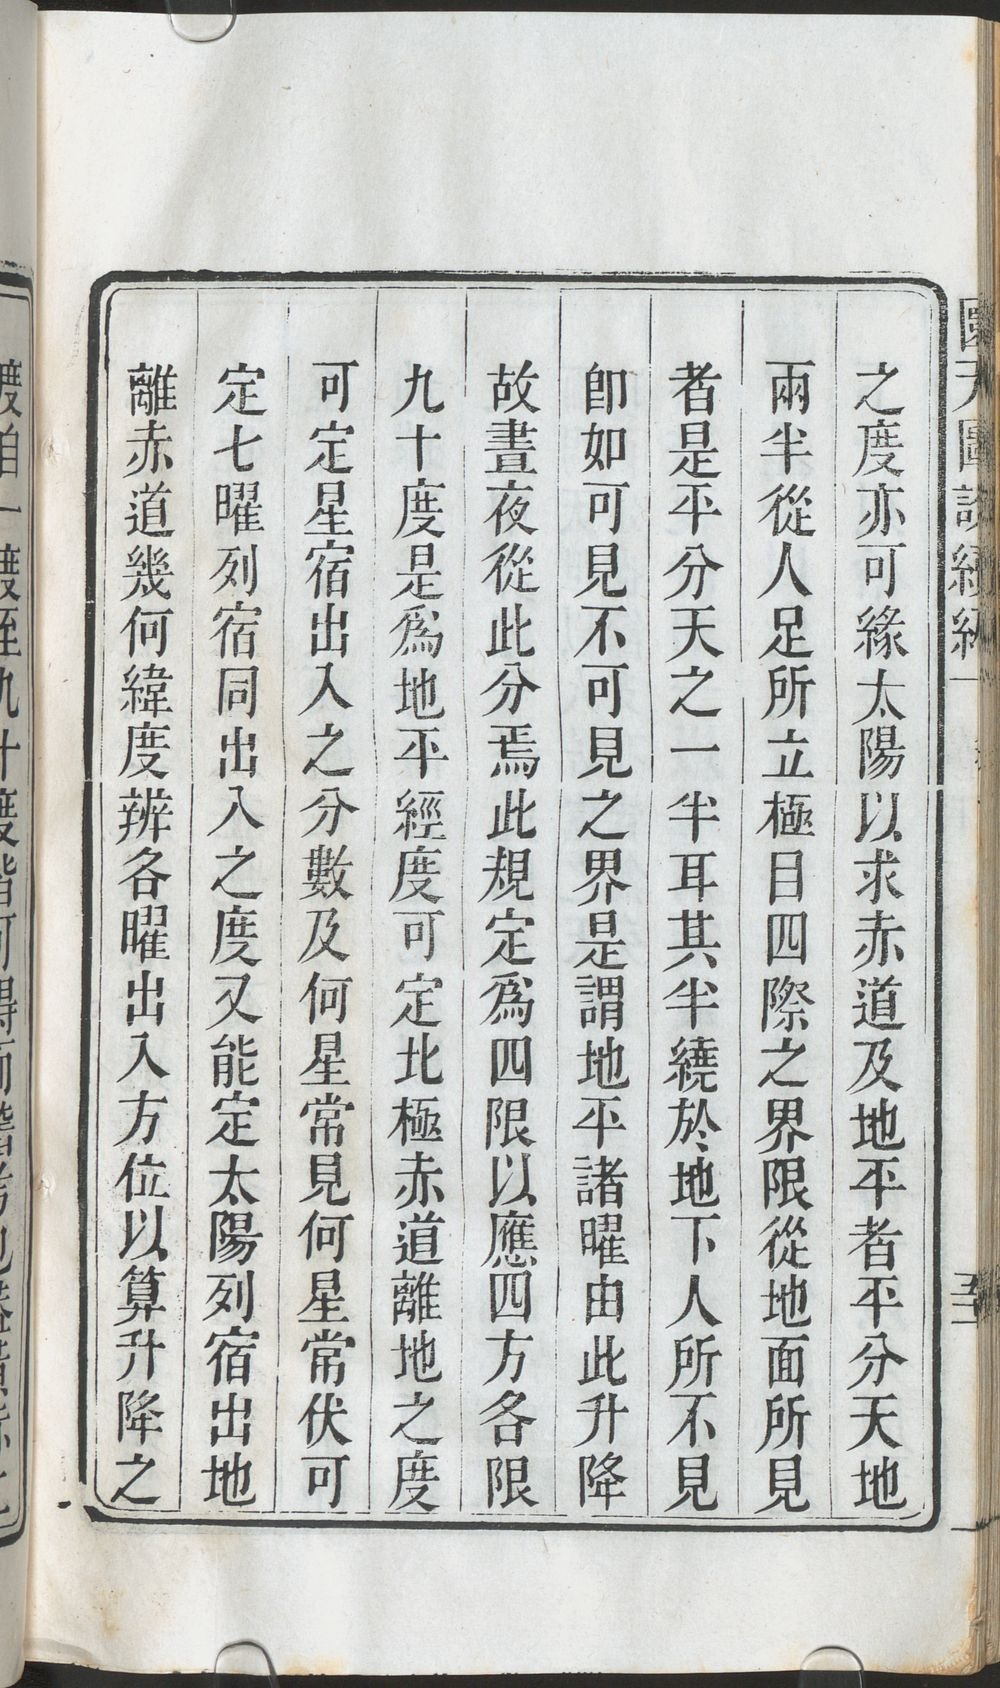 之度亦可緣太陽以求赤道及地平者平分天地
兩半從人足所立極目四際之界限從地面所見
者是平分天之一半耳其半繞於地下人所不見
卽如可見不可見之界是謂地平諸曜由此升降
故晝夜從此分焉此規定爲四限以應四方各限
九十度是爲地平經度可定北極赤道離地之度
可定星宿出入之分數及何星常見何星常伏可
定七曜列宿同出入之度又能定太陽列宿出地
離赤道幾何緯度辨各曜出入方位以算升降之